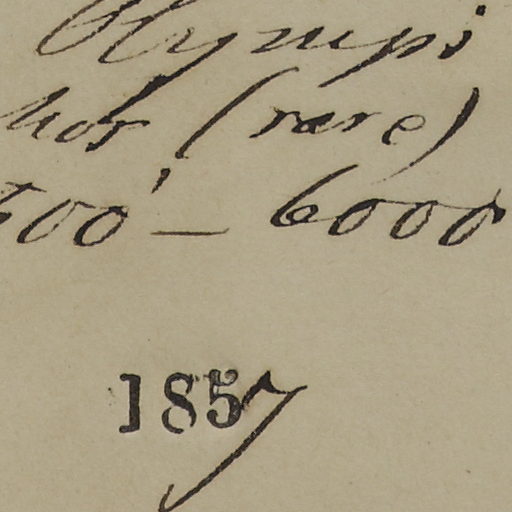 Olympi
(rare)
500' – 6000
1857